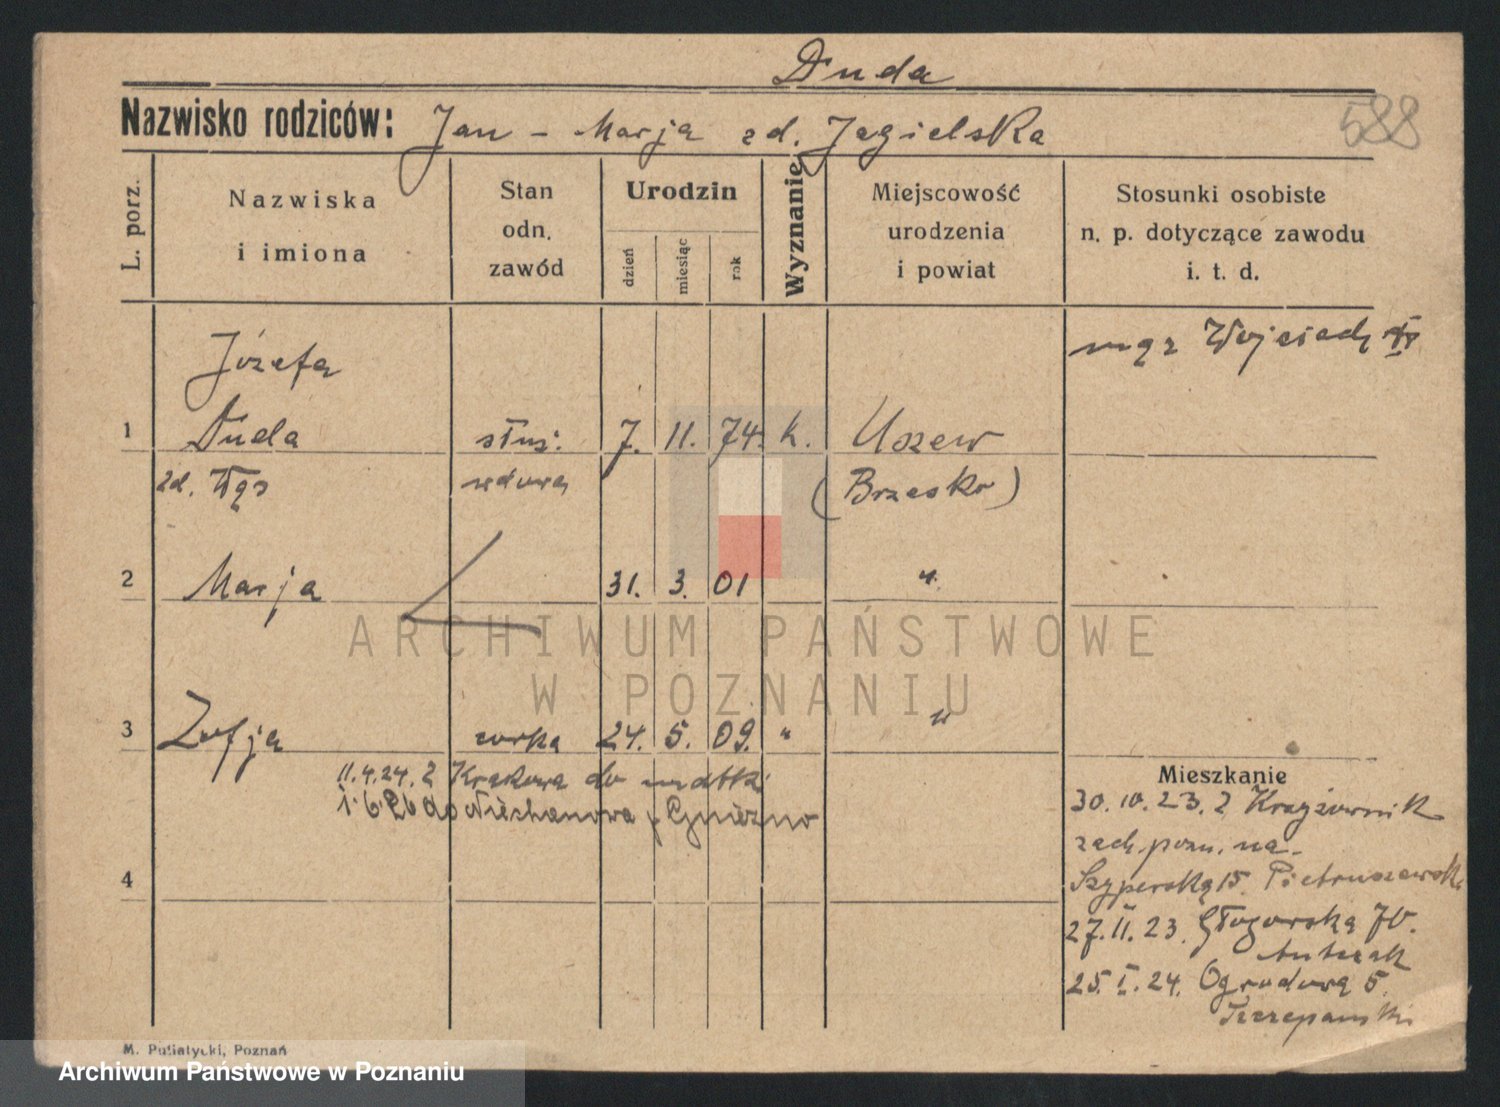 Duda
Nazwisko rodziców: Jan - Marja zd. Jagielska
588
L. porz.
Nazwiska
i imiona
Stan
odn.
zawód
Urodzin
dzień
miesiąc
rok
Wyznanie
Miejscowość
urodzenia
i powiat
Stosunki osobiste
n. p. dotyczące zawodu
i. t. d.
Józefa
mąż Wojciech
1 Duda służ. 7. 11. 74. k. Uszew
zd. Wąs wdowa (Brzesko)
2 Marja 31. 3. 01 "
3 Zofja corka 24. 5. 09. " "
11.4.24. z Krakowa do matki
1.6.26 do Niechanowa p. Gniezno
4
Mieszkanie
30.10.23. z Krzyżownik
zach. pozn. na
Szyperską 15. Pietruszewski
27.II.23. Głogowską 70.
Antczak
25.I.24. Ogrodową 5
Szczepanski
M. Putiatycki, Poznań
ARCHIWUM PAŃSTWOWE
W POZNANIU
Archiwum Państwowe w Poznaniu